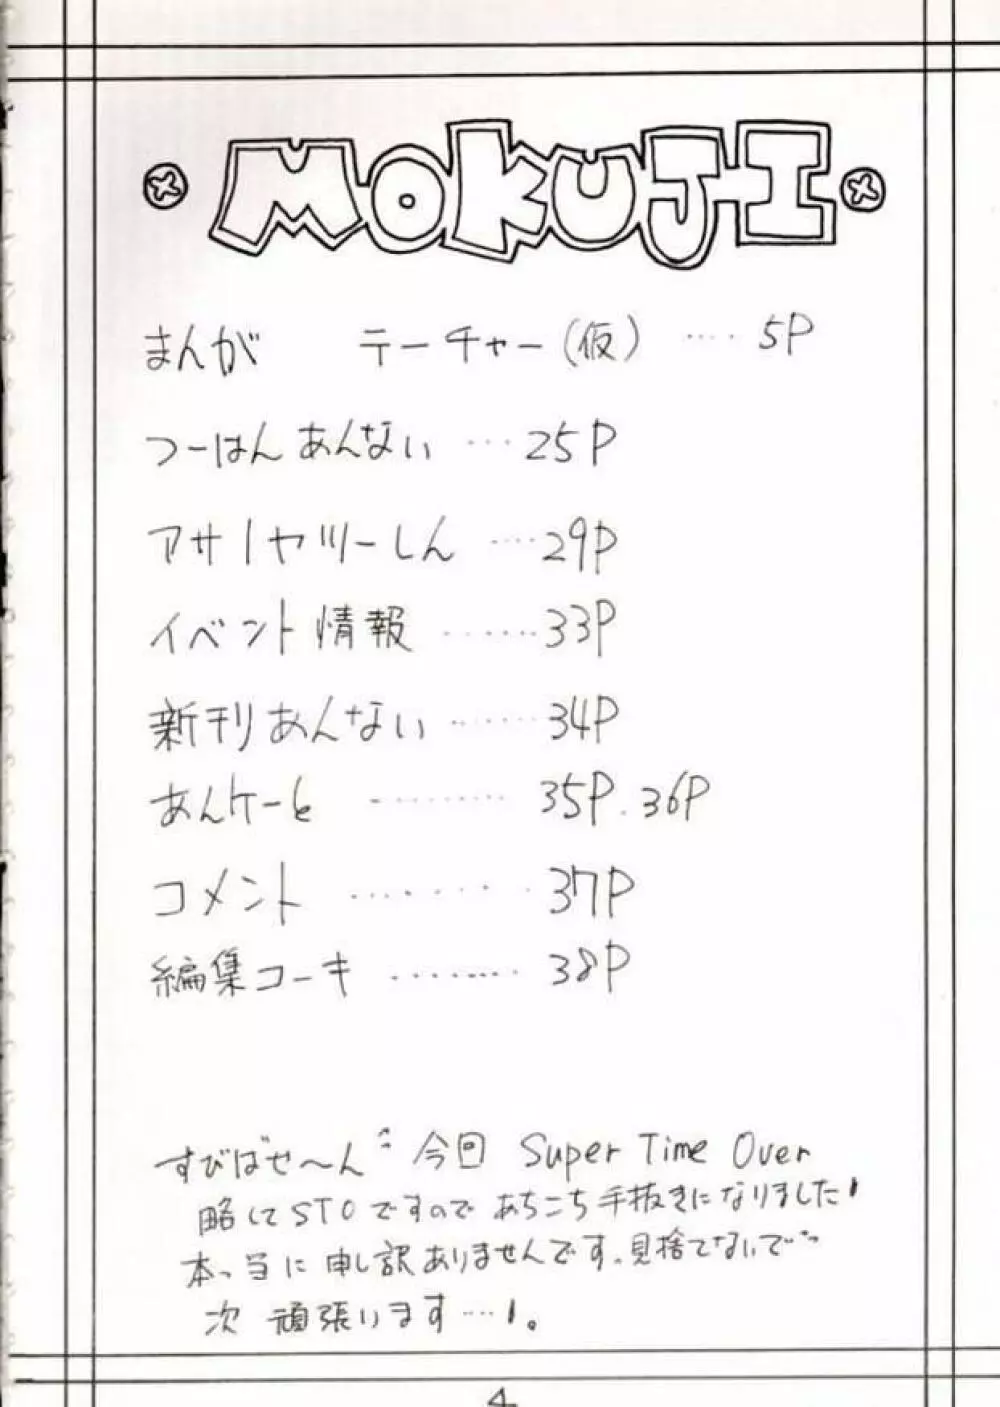 MOKUJI
まんが テーチャー(仮) ‥‥ 5P
つーはんあんない … 25P
アサノヤツーしん ‥‥ 29P
イベント情報 ‥‥‥ 33P
新刊あんない ‥‥‥ 34P
あんケーと ‥‥‥‥ 35P.36P
コメント ‥‥‥‥ 37P
編集コーキ ‥‥‥‥ 38P
すびばせ〜ん 今回 Super Time Over
略してSTOですのであちこち手抜きになりました!
本っ当に申し訳ありませんです。見捨てないでっ
次 頑張います‥‥!。
4